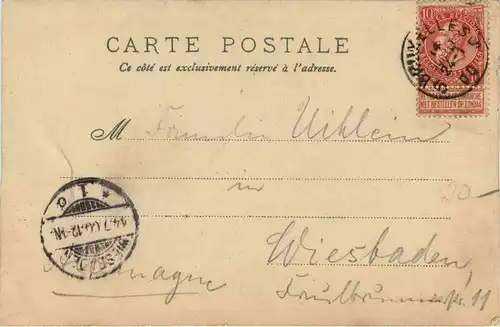 CARTE POSTALE
Ce côté est exclusivement réservé à l'adresse.
10
NIET BESTELLEN OP ZONDAG
M Fräulein Uihlein
in
20
Wiesbaden,
Allemagne
11
WIESBADEN
14.7
* 1 a